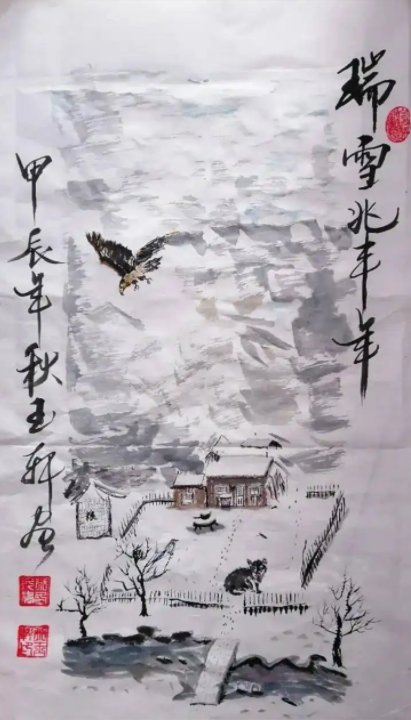 瑞雪兆丰年
甲辰年秋玉轩画